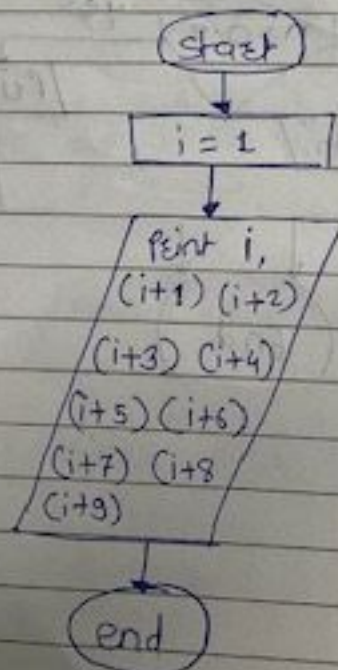 Start
i = 1
Print i,
(i+1) (i+2)
(i+3) (i+4)
(i+5) (i+6)
(i+7) (i+8
(i+9)
end